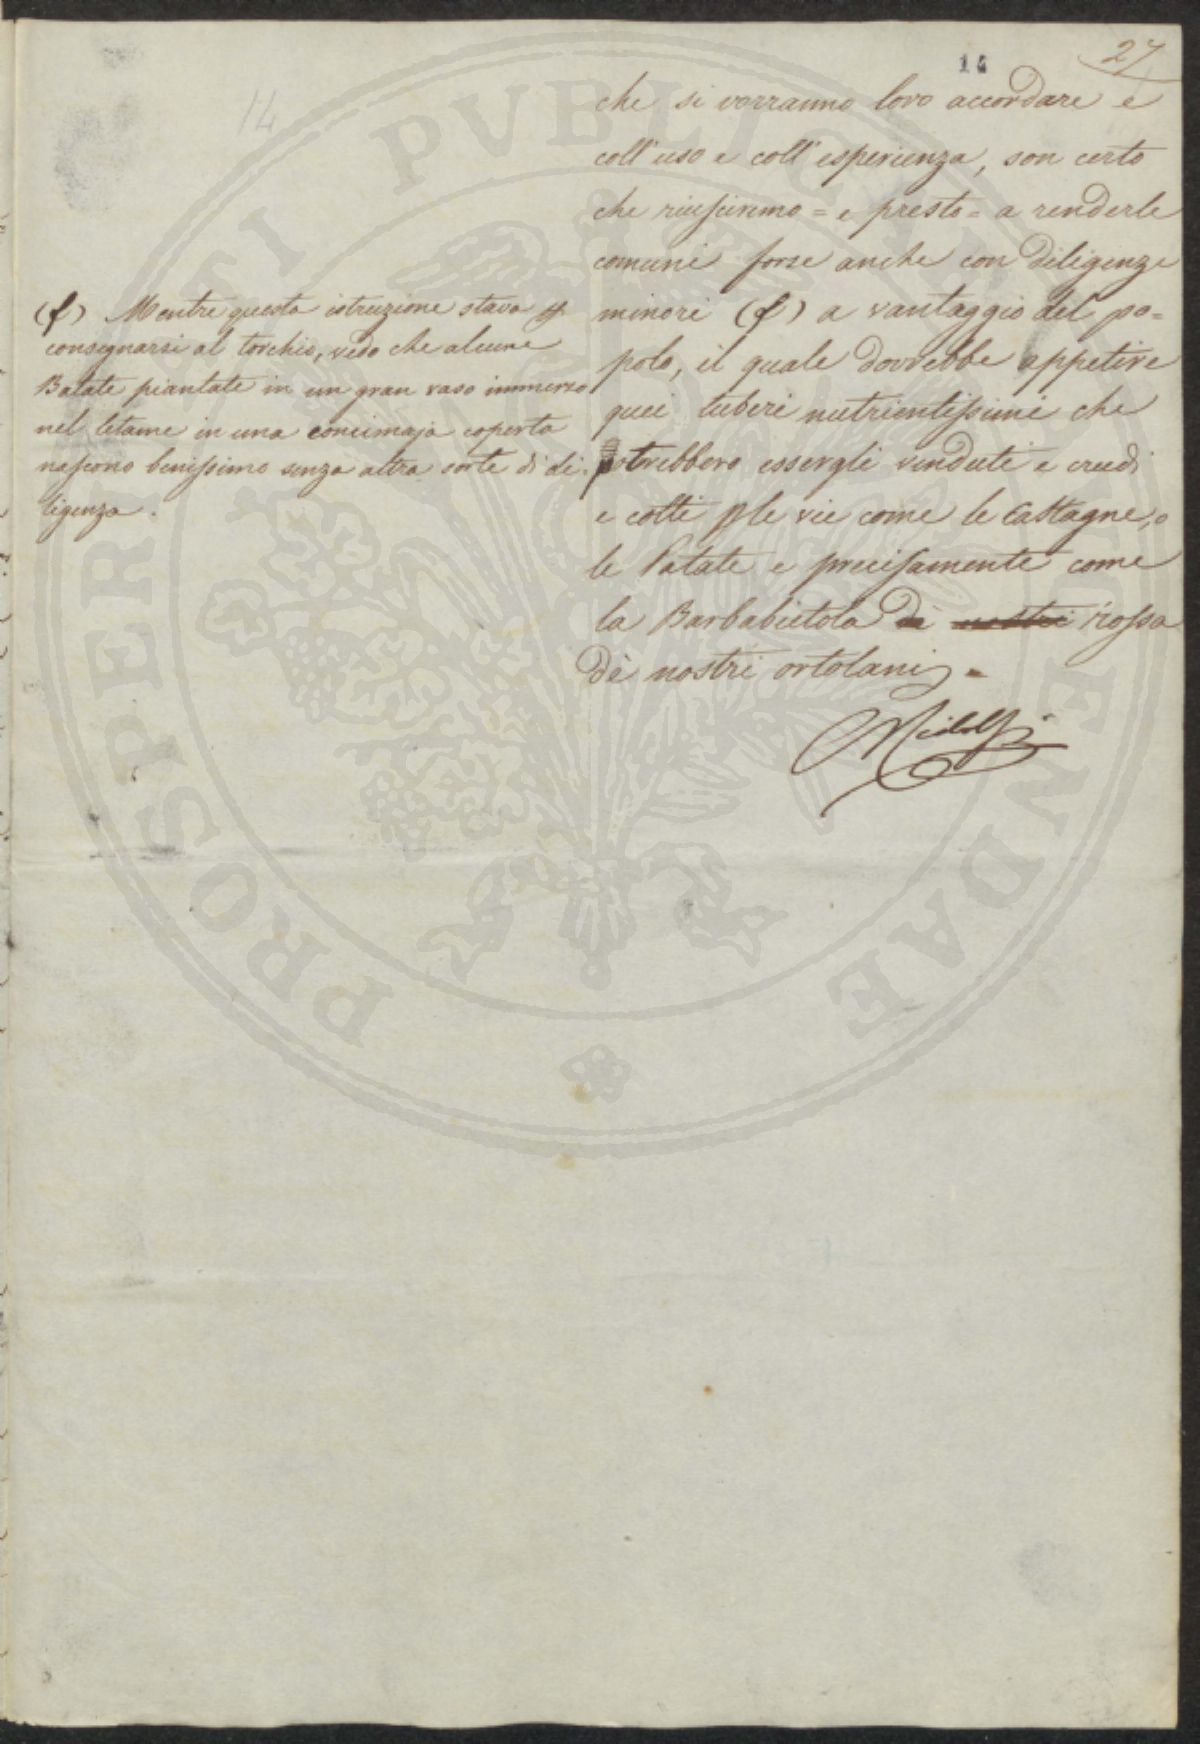 27
14
14
che si vorranno loro accordare e
coll'uso e coll'esperienza, son certo
che riusciremo = e presto = a renderle
comuni forse anche con diligenze
minori (f) a vantaggio del po=
polo, il quale dovrebbe appetire
quei tuberi nutrientissimi che
potrebbero essergli venduti e crudi
e cotti p le vie come le Castagne, o
le Patate e precisamente come
la Barbabietola di nostri rossa
dè nostri ortolani =
Ridolfi
(f) Mentre questa istruzione stava p
consegnarsi al torchio, vedo che alcune
Batate piantate in un gran vaso immerso
nel letame in una concimaja coperta
nascono benissimo senza altra sorte di di=
ligenza.
PROSPERITATI PVBLICAE AVGENDAE